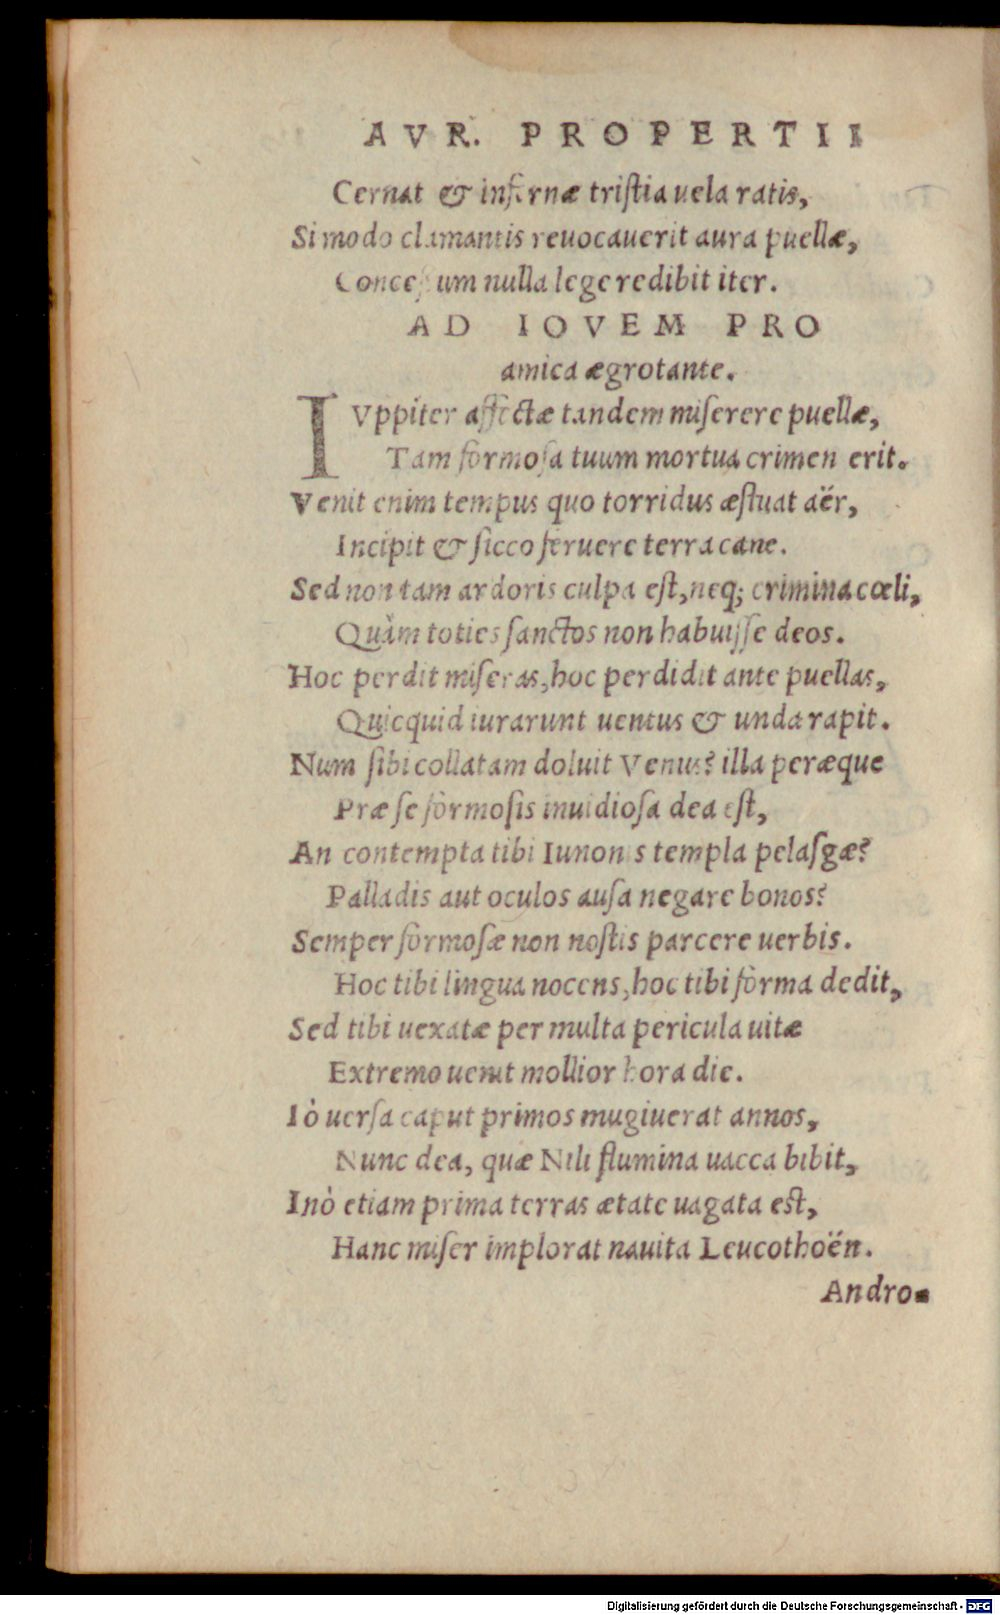 AVR. PROPERTII
Cernat & infernæ tristia uela ratis,
Si modo clamantis reuocauerit aura puellæ,
Concessum nulla lege redibit iter.
AD IOVEM PRO
amica ægrotante.
IVppiter affectæ tandem miserere puellæ,
Tam formosa tuum mortua crimen erit.
Venit enim tempus quo torridus æstuat aër,
Incipit & sicco feruere terra cane.
Sed non tam ardoris culpa est, neq; crimina cœli,
Quàm toties sanctos non habuisse deos.
Hoc perdit miseras, hoc perdidit ante puellas,
Quicquid iurarunt uentus & unda rapit.
Num sibi collatam doluit Venus? illa peræque
Præ se formosis inuidiosa dea est,
An contempta tibi Iunonis templa pelasgæ?
Palladis aut oculos ausa negare bonos?
Semper formosæ non nostis parcere uerbis.
Hoc tibi lingua nocens, hoc tibi forma dedit,
Sed tibi uexatæ per multa pericula uitæ
Extremo uenit mollior hora die.
Iò uersa caput primos mugiuerat annos,
Nunc dea, quæ Nili flumina uacca bibit,
Inò etiam prima terras ætate uagata est,
Hanc miser implorat nauita Leucothoën.
Andro-
Digitalisierung gefördert durch die Deutsche Forschungsgemeinschaft - DFG